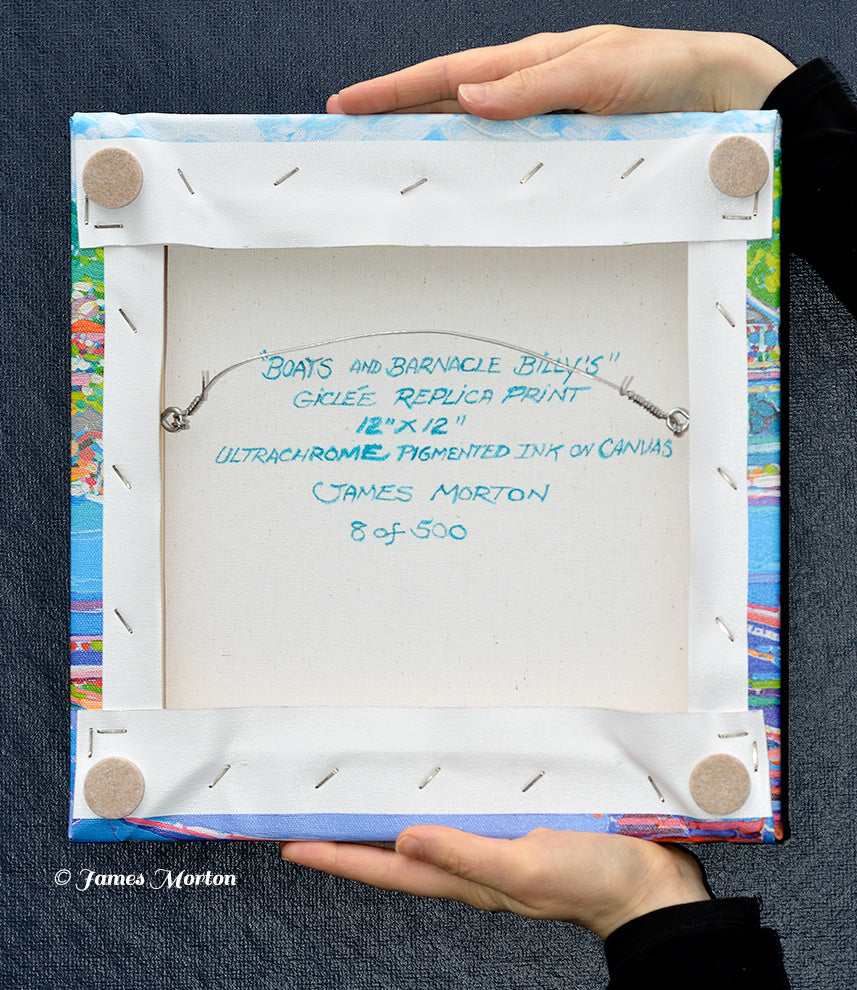 "BOATS AND BARNACLE BILLY'S"
GICLÉE REPLICA PRINT
12" X 12"
ULTRACHROME PIGMENTED INK ON CANVAS
JAMES MORTON
8 of 500
© James Morton